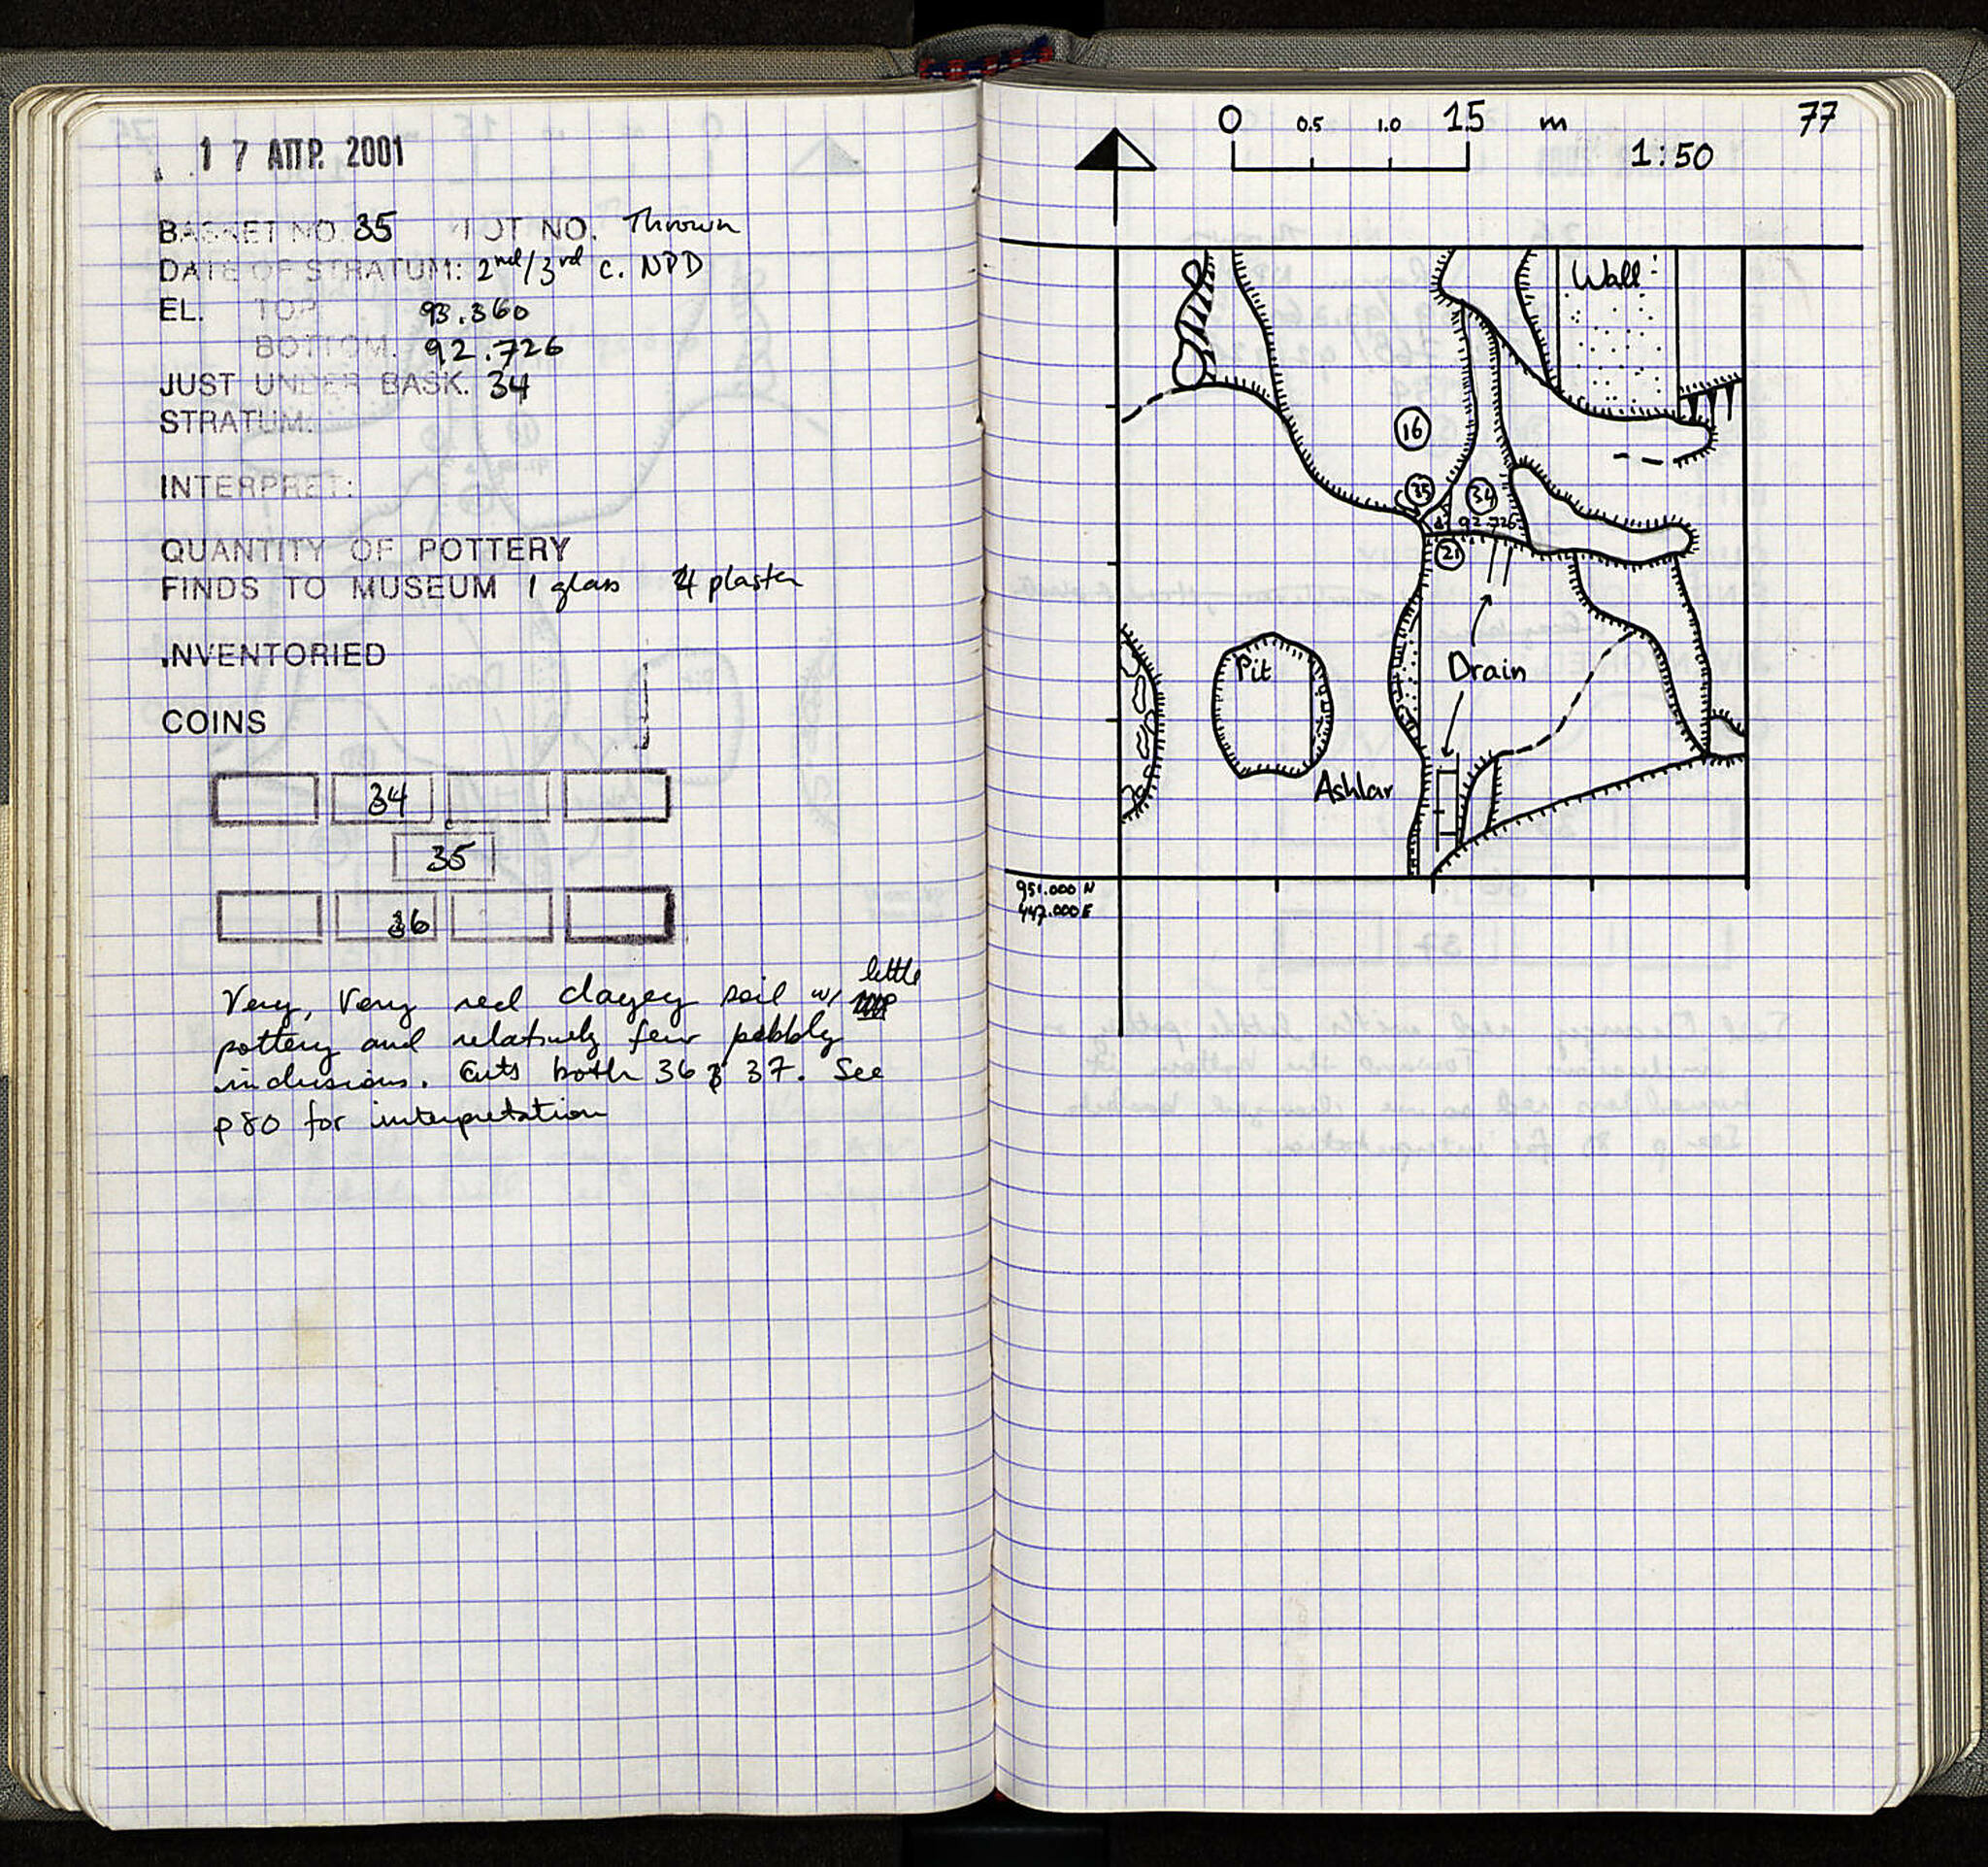 1 7 ΑΠΡ. 2001
BASKET NO. 35 LOT NO. Thrown
DATE OF STRATUM: 2nd/3rd c. NPD
EL. TOP 93.360
BOTTOM. 92.726
JUST UNDER BASK. 34
STRATUM:
INTERPRET:
QUANTITY OF POTTERY
FINDS TO MUSEUM 1 glass 4 plaster
INVENTORIED
COINS
34
35
36
Very, Very red clayey soil w/ little
pottery and relatively few pebbly
inclusions. Cuts both 36 & 37. See
p80 for interpretation
77
0 0.5 1.0 1.5 m
1:50
Wall
16
35
34
92.726
21
Drain
Pit
Ashlar
951.000 N
447.000 E